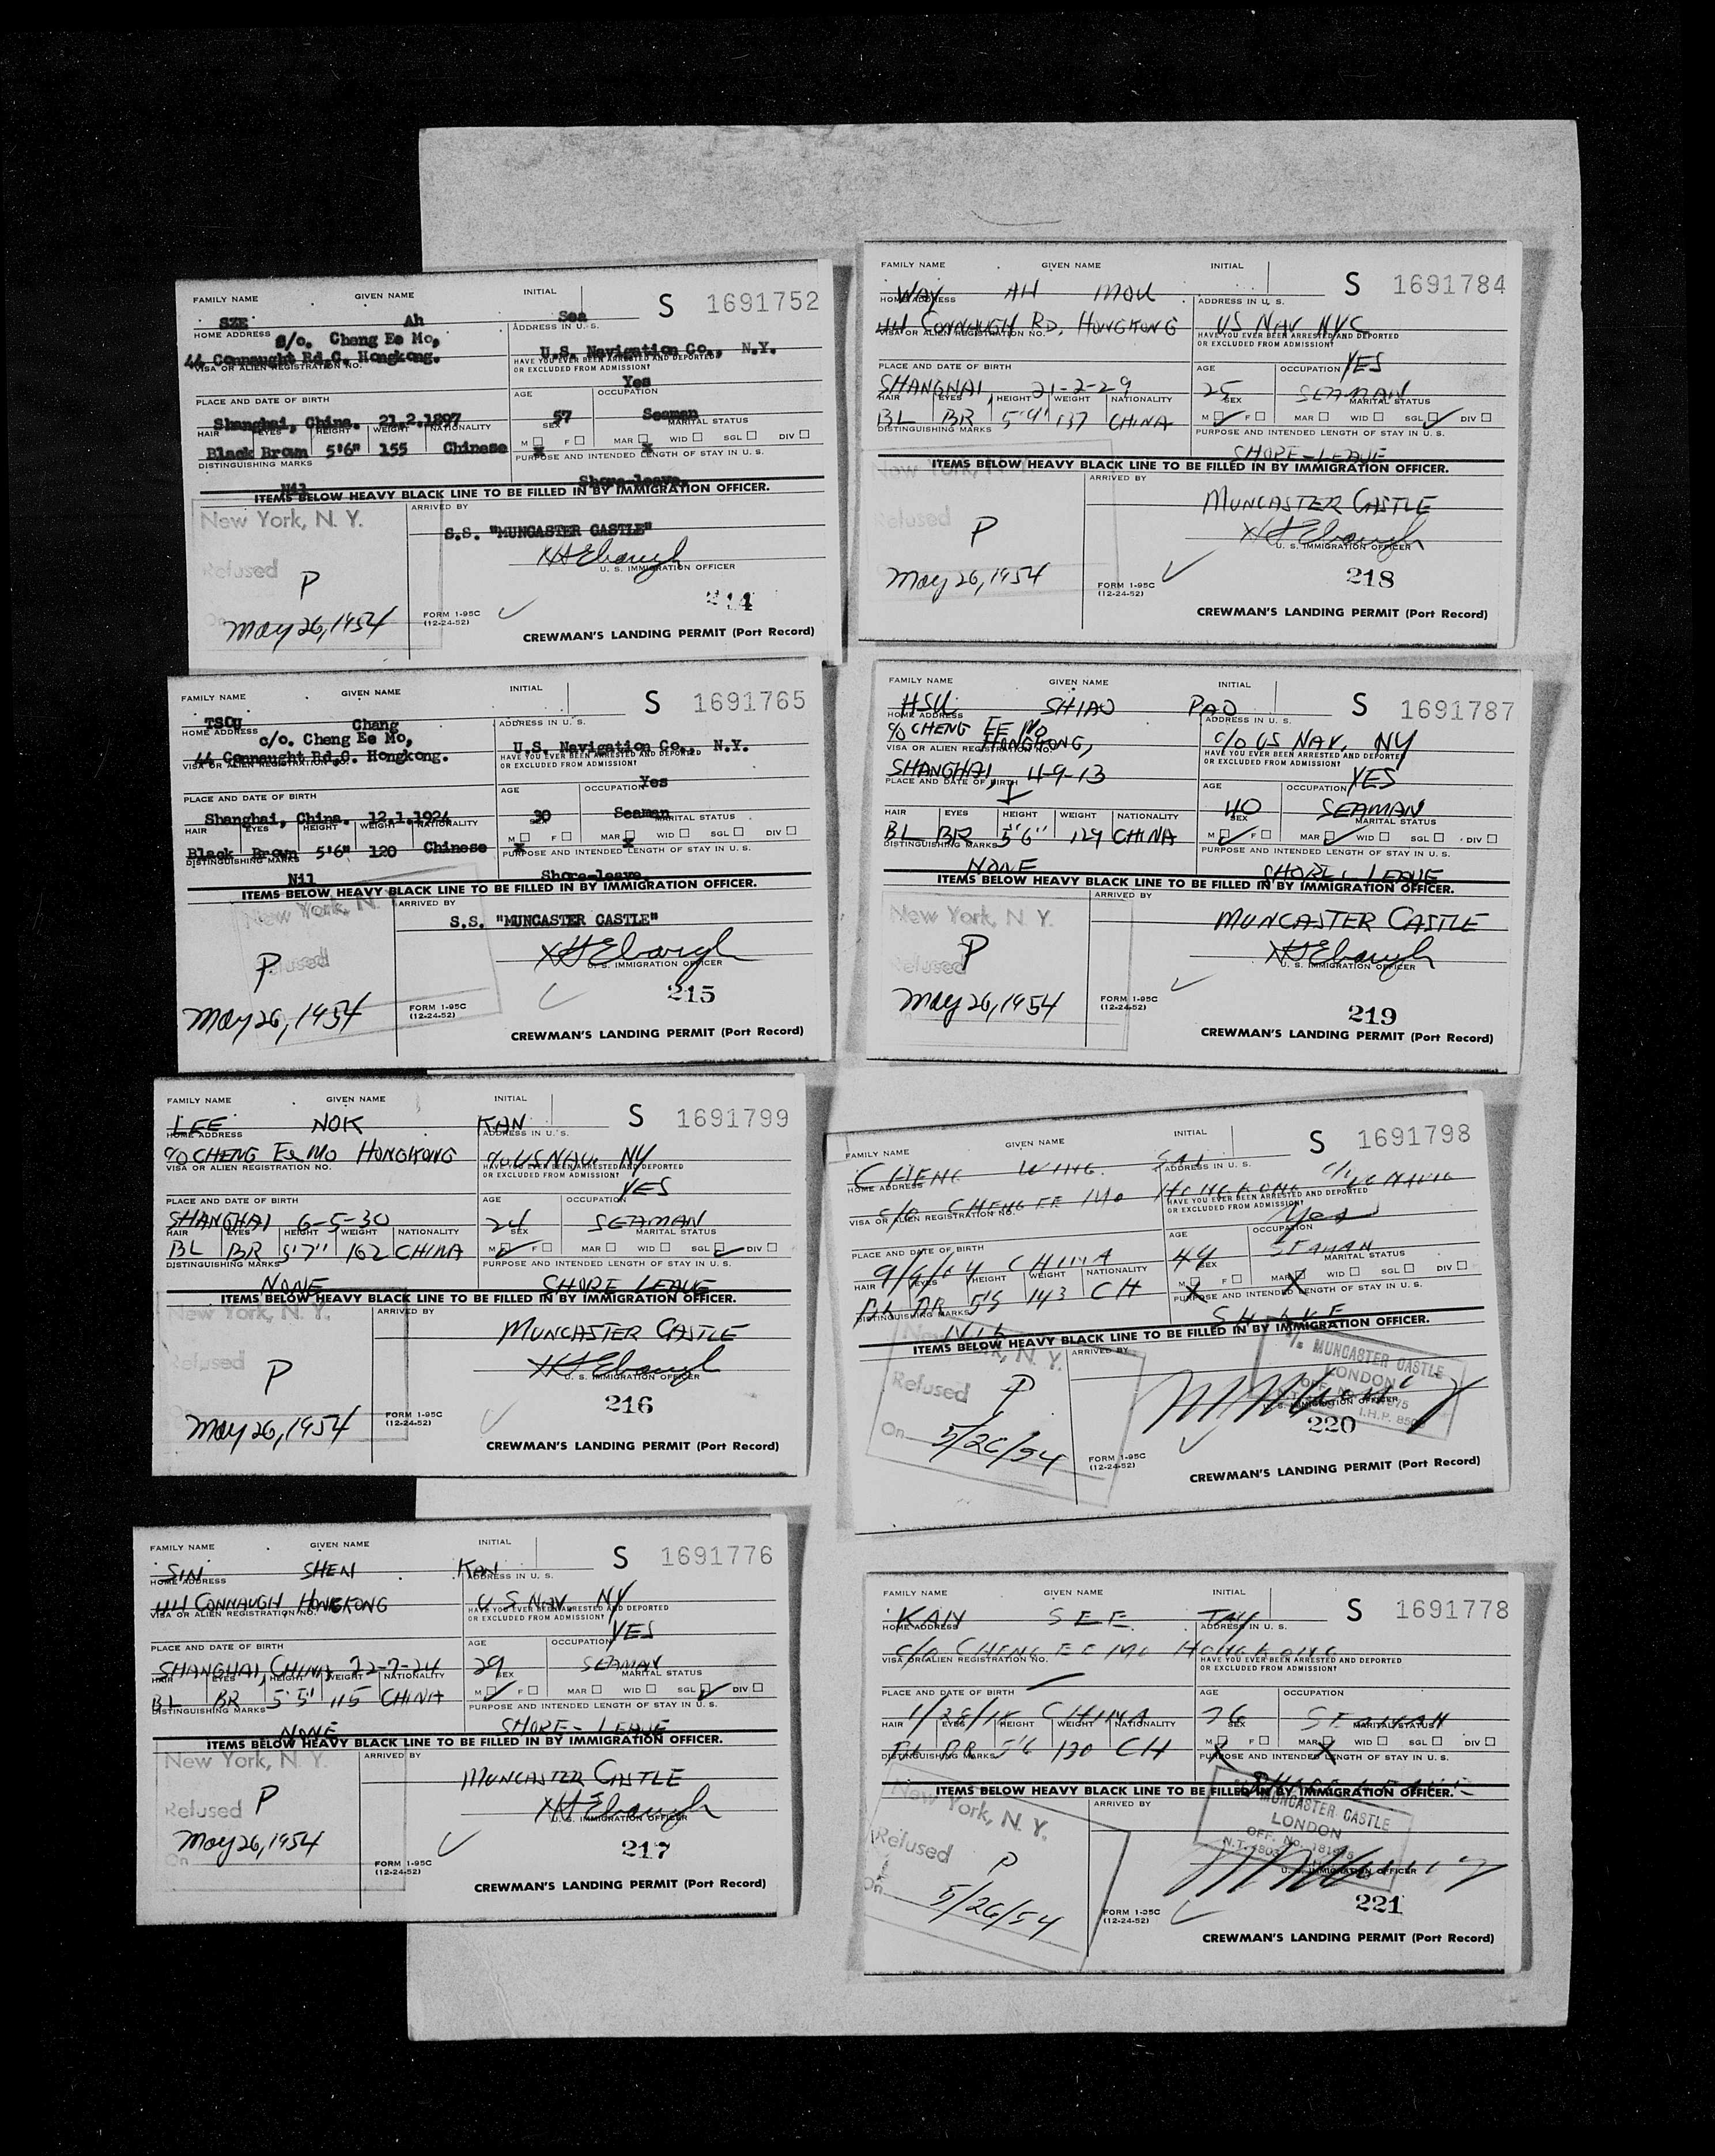 FAMILY NAME GIVEN NAME INITIAL S 1691752
SZE Ah Sea
HOME ADDRESS ADDRESS IN U. S.
c/o. Cheng Ee Mo,
44 Connaught Rd.C. Hongkong. U.S. Navigation Co., N.Y.
VISA OR ALIEN REGISTRATION NO. HAVE YOU EVER BEEN ARRESTED AND DEPORTED OR EXCLUDED FROM ADMISSION?
Yes
PLACE AND DATE OF BIRTH AGE OCCUPATION
Shanghai, China. 21.2.1897 57 Seaman
HAIR EYES HEIGHT WEIGHT NATIONALITY SEX MARITAL STATUS
M F MAR WID SGL DIV
Black Brown 5'6" 155 Chinese x x
DISTINGUISHING MARKS PURPOSE AND INTENDED LENGTH OF STAY IN U. S.
Nil Shore-leave.
ITEMS BELOW HEAVY BLACK LINE TO BE FILLED IN BY IMMIGRATION OFFICER.
New York, N. Y. ARRIVED BY
S.S. "MUNCASTER CASTLE"
Refused
U. S. IMMIGRATION OFFICER
P
214
May 26, 1954 FORM I-95C
(12-24-52)
CREWMAN'S LANDING PERMIT (Port Record)
FAMILY NAME GIVEN NAME INITIAL S 1691765
TSOU Chang
HOME ADDRESS ADDRESS IN U. S.
c/o. Cheng Ee Mo,
44 Connaught Rd.C. Hongkong. U.S. Navigation Co., N.Y.
VISA OR ALIEN REGISTRATION NO. HAVE YOU EVER BEEN ARRESTED AND DEPORTED OR EXCLUDED FROM ADMISSION?
Yes
PLACE AND DATE OF BIRTH AGE OCCUPATION
Shanghai, China. 12.1.1924 30 Seaman
HAIR EYES HEIGHT WEIGHT NATIONALITY SEX MARITAL STATUS
M F MAR WID SGL DIV
Black Brown 5'6" 120 Chinese x x
DISTINGUISHING MARKS PURPOSE AND INTENDED LENGTH OF STAY IN U. S.
Nil Shore-leave.
ITEMS BELOW HEAVY BLACK LINE TO BE FILLED IN BY IMMIGRATION OFFICER.
New York, N. ARRIVED BY
S.S. "MUNCASTER CASTLE"
P Refused
U. S. IMMIGRATION OFFICER
215
May 26, 1954 FORM I-95C
(12-24-52)
CREWMAN'S LANDING PERMIT (Port Record)
FAMILY NAME GIVEN NAME INITIAL S 1691799
LEE NOK KAN
HOME ADDRESS ADDRESS IN U. S.
c/o CHENG Ee Mo HONGKONG c/o US NAV. NY
VISA OR ALIEN REGISTRATION NO. HAVE YOU EVER BEEN ARRESTED AND DEPORTED OR EXCLUDED FROM ADMISSION?
YES
PLACE AND DATE OF BIRTH AGE OCCUPATION
SHANGHAI 6-5-30 24 SEAMAN
HAIR EYES HEIGHT WEIGHT NATIONALITY SEX MARITAL STATUS
BL BR 5'7" 162 CHINA M F MAR WID SGL DIV
DISTINGUISHING MARKS PURPOSE AND INTENDED LENGTH OF STAY IN U. S.
NONE SHORE LEAVE
ITEMS BELOW HEAVY BLACK LINE TO BE FILLED IN BY IMMIGRATION OFFICER.
New York, N. Y. ARRIVED BY
MUNCASTER CASTLE
Refused
U. S. IMMIGRATION OFFICER
P
216
May 26, 1954 FORM I-95C
(12-24-52)
CREWMAN'S LANDING PERMIT (Port Record)
FAMILY NAME GIVEN NAME INITIAL S 1691776
SIN SHEN KAN
HOME ADDRESS ADDRESS IN U. S.
44 CONNAUGH HONGKONG U S NAV NY
VISA OR ALIEN REGISTRATION NO. HAVE YOU EVER BEEN ARRESTED AND DEPORTED OR EXCLUDED FROM ADMISSION?
YES
PLACE AND DATE OF BIRTH AGE OCCUPATION
SHANGHAI, CHINA 29 SEAMAN
HAIR EYES HEIGHT WEIGHT NATIONALITY SEX MARITAL STATUS
BL BR 5'5" 115 CHINA M F MAR WID SGL DIV
DISTINGUISHING MARKS PURPOSE AND INTENDED LENGTH OF STAY IN U. S.
NONE SHORE-LEAVE
ITEMS BELOW HEAVY BLACK LINE TO BE FILLED IN BY IMMIGRATION OFFICER.
New York, N. Y. ARRIVED BY
MUNCASTER CASTLE
Refused P
U. S. IMMIGRATION OFFICER
217
May 26, 1954
On FORM I-95C
(12-24-52)
CREWMAN'S LANDING PERMIT (Port Record)
FAMILY NAME GIVEN NAME INITIAL S 1691784
WAY AH MOU
HOME ADDRESS ADDRESS IN U. S.
44 CONNAUGH RD. HONGKONG US NAV NYC
VISA OR ALIEN REGISTRATION NO. HAVE YOU EVER BEEN ARRESTED AND DEPORTED OR EXCLUDED FROM ADMISSION?
YES
PLACE AND DATE OF BIRTH AGE OCCUPATION
SHANGHAI, 21-2-29 25 SEAMAN
HAIR EYES HEIGHT WEIGHT NATIONALITY SEX MARITAL STATUS
BL BR 137 CHINA M F MAR WID SGL DIV
DISTINGUISHING MARKS PURPOSE AND INTENDED LENGTH OF STAY IN U. S.
SHORE-LEAVE
ITEMS BELOW HEAVY BLACK LINE TO BE FILLED IN BY IMMIGRATION OFFICER.
ARRIVED BY
MUNCASTER CASTLE
Refused
P
U. S. IMMIGRATION OFFICER
218
May 26, 1954 FORM I-95C
(12-24-52)
CREWMAN'S LANDING PERMIT (Port Record)
FAMILY NAME GIVEN NAME INITIAL S 1691787
HSU SHIAO PAO
HOME ADDRESS ADDRESS IN U. S.
c/o CHENG EE MO
HONGKONG, c/o US NAV. NY
VISA OR ALIEN REGISTRATION NO. HAVE YOU EVER BEEN ARRESTED AND DEPORTED OR EXCLUDED FROM ADMISSION?
SHANGHAI, 4-9-13 YES
PLACE AND DATE OF BIRTH AGE OCCUPATION
40 SEAMAN
HAIR EYES HEIGHT WEIGHT NATIONALITY SEX MARITAL STATUS
BL BR 5'6" 129 CHINA M F MAR WID SGL DIV
DISTINGUISHING MARKS PURPOSE AND INTENDED LENGTH OF STAY IN U. S.
NONE SHORE LEAVE
ITEMS BELOW HEAVY BLACK LINE TO BE FILLED IN BY IMMIGRATION OFFICER.
New York, N. Y. ARRIVED BY
MUNCASTER CASTLE
P
Refused
U. S. IMMIGRATION OFFICER
May 26, 1954 FORM I-95C
(12-24-52)
219
CREWMAN'S LANDING PERMIT (Port Record)
FAMILY NAME GIVEN NAME INITIAL S 1691798
CHENG WING SAI
HOME ADDRESS ADDRESS IN U. S.
c/o CHENG EE MO HONGKONG
VISA OR ALIEN REGISTRATION NO. HAVE YOU EVER BEEN ARRESTED AND DEPORTED OR EXCLUDED FROM ADMISSION?
Yes
PLACE AND DATE OF BIRTH AGE OCCUPATION
CHINA 49 SEAMAN
HAIR EYES HEIGHT WEIGHT NATIONALITY SEX MARITAL STATUS
BL BR 5'5 143 CH M F MAR WID SGL DIV
DISTINGUISHING MARKS PURPOSE AND INTENDED LENGTH OF STAY IN U. S.
ITEMS BELOW HEAVY BLACK LINE TO BE FILLED IN BY IMMIGRATION OFFICER.
New York, N. Y. ARRIVED BY
MUNCASTER CASTLE
LONDON
Refused P
U. S. IMMIGRATION OFFICER
220
On 5/26/54 FORM I-95C
(12-24-52)
CREWMAN'S LANDING PERMIT (Port Record)
FAMILY NAME GIVEN NAME INITIAL S 1691778
KAN SEE TAY
HOME ADDRESS ADDRESS IN U. S.
c/o CHENG EE MO HONGKONG
VISA OR ALIEN REGISTRATION NO. HAVE YOU EVER BEEN ARRESTED AND DEPORTED OR EXCLUDED FROM ADMISSION?
PLACE AND DATE OF BIRTH AGE OCCUPATION
CHINA SEAMAN
HAIR EYES HEIGHT WEIGHT NATIONALITY SEX MARITAL STATUS
BL BR 5'6 130 CH M F MAR WID SGL DIV
DISTINGUISHING MARKS PURPOSE AND INTENDED LENGTH OF STAY IN U. S.
SHORE LEAVE
ITEMS BELOW HEAVY BLACK LINE TO BE FILLED IN BY IMMIGRATION OFFICER.
New York, N. Y. ARRIVED BY
MUNCASTER CASTLE
LONDON
Refused P
U. S. IMMIGRATION OFFICER
On 5/26/54 221
FORM I-95C
(12-24-52)
CREWMAN'S LANDING PERMIT (Port Record)